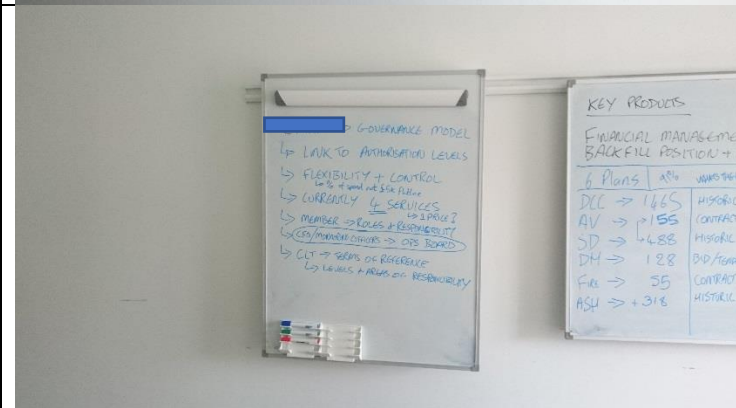 → GOVERNANCE MODEL
↳ LINK TO AUTHORISATION LEVELS
↳ FLEXIBILITY + CONTROL
↳ % of spend not
↳ CURRENTLY 4 SERVICES
↳ 1 PRICE?
↳ MEMBER → ROLES + RESPONSIBILITY
↳ CFO/MONITORING OFFICERS → OPS BOARD
↳ CLT → TERMS OF REFERENCE
↳ LEVELS + AREAS OF RESPONSIBILITY
KEY PRODUCTS
FINANCIAL MANAGEME
BACKFILL POSITION +
6 Plans
DCC → 1465 HISTORIC
AV → 155 CONTRACT
SD → 488 HISTORIC
DH → 128 BID/TENA
Fire → 55 CONTRACT
ASH → + 318 HISTORIC